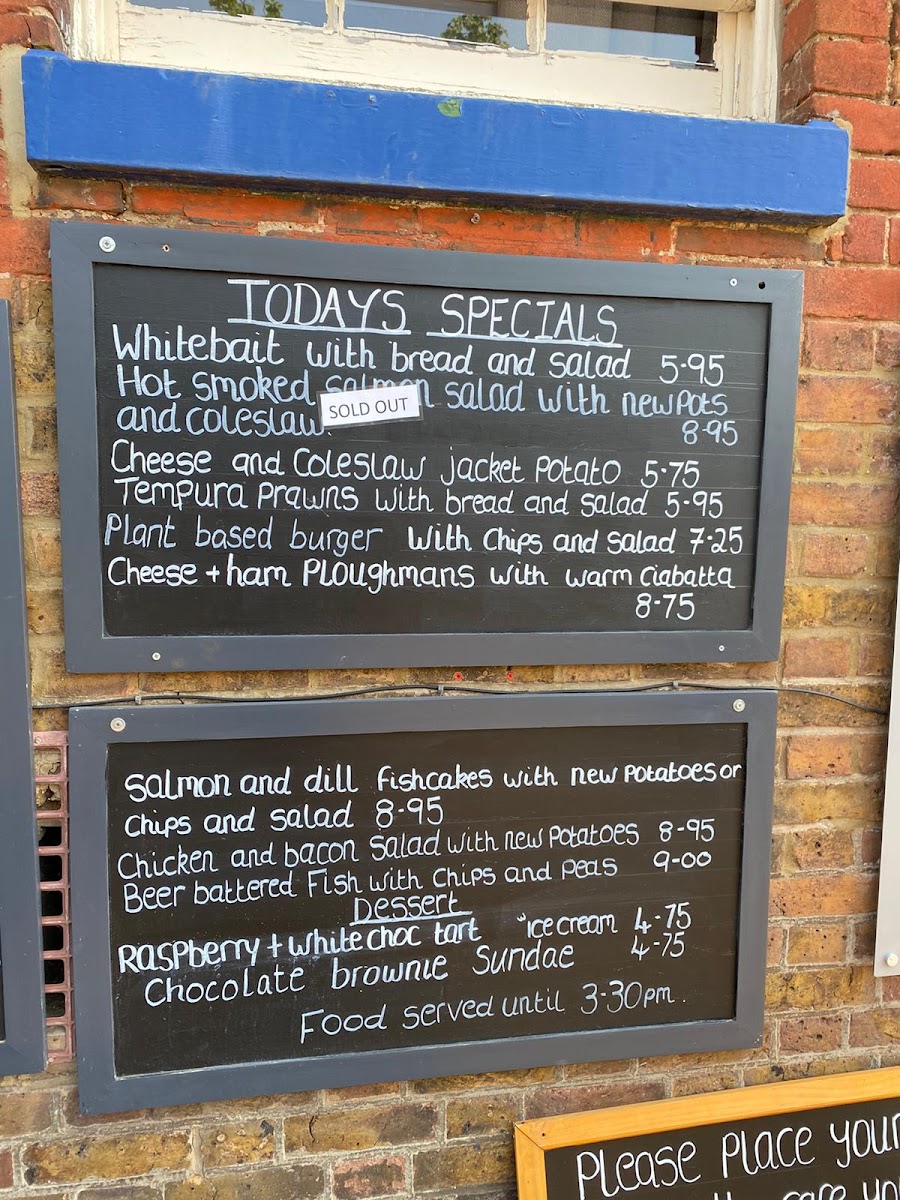 TODAYS SPECIALS
Whitebait with bread and salad 5-95
Hot smoked salmon salad with new pots
and coleslaw. 8-95
SOLD OUT
Cheese and coleslaw jacket potato 5-75
Tempura prawns with bread and salad 5-95
Plant based burger with chips and salad 7-25
Cheese + ham Ploughmans with warm ciabatta
8-75
Salmon and dill fishcakes with new potatoes or
chips and salad 8-95
Chicken and bacon salad with new potatoes 8-95
Beer battered Fish with chips and peas 9-00
Dessert
Raspberry + white choc tart "ice cream 4-75
Chocolate brownie Sundae 4-75
Food served until 3-30pm.
Please place your